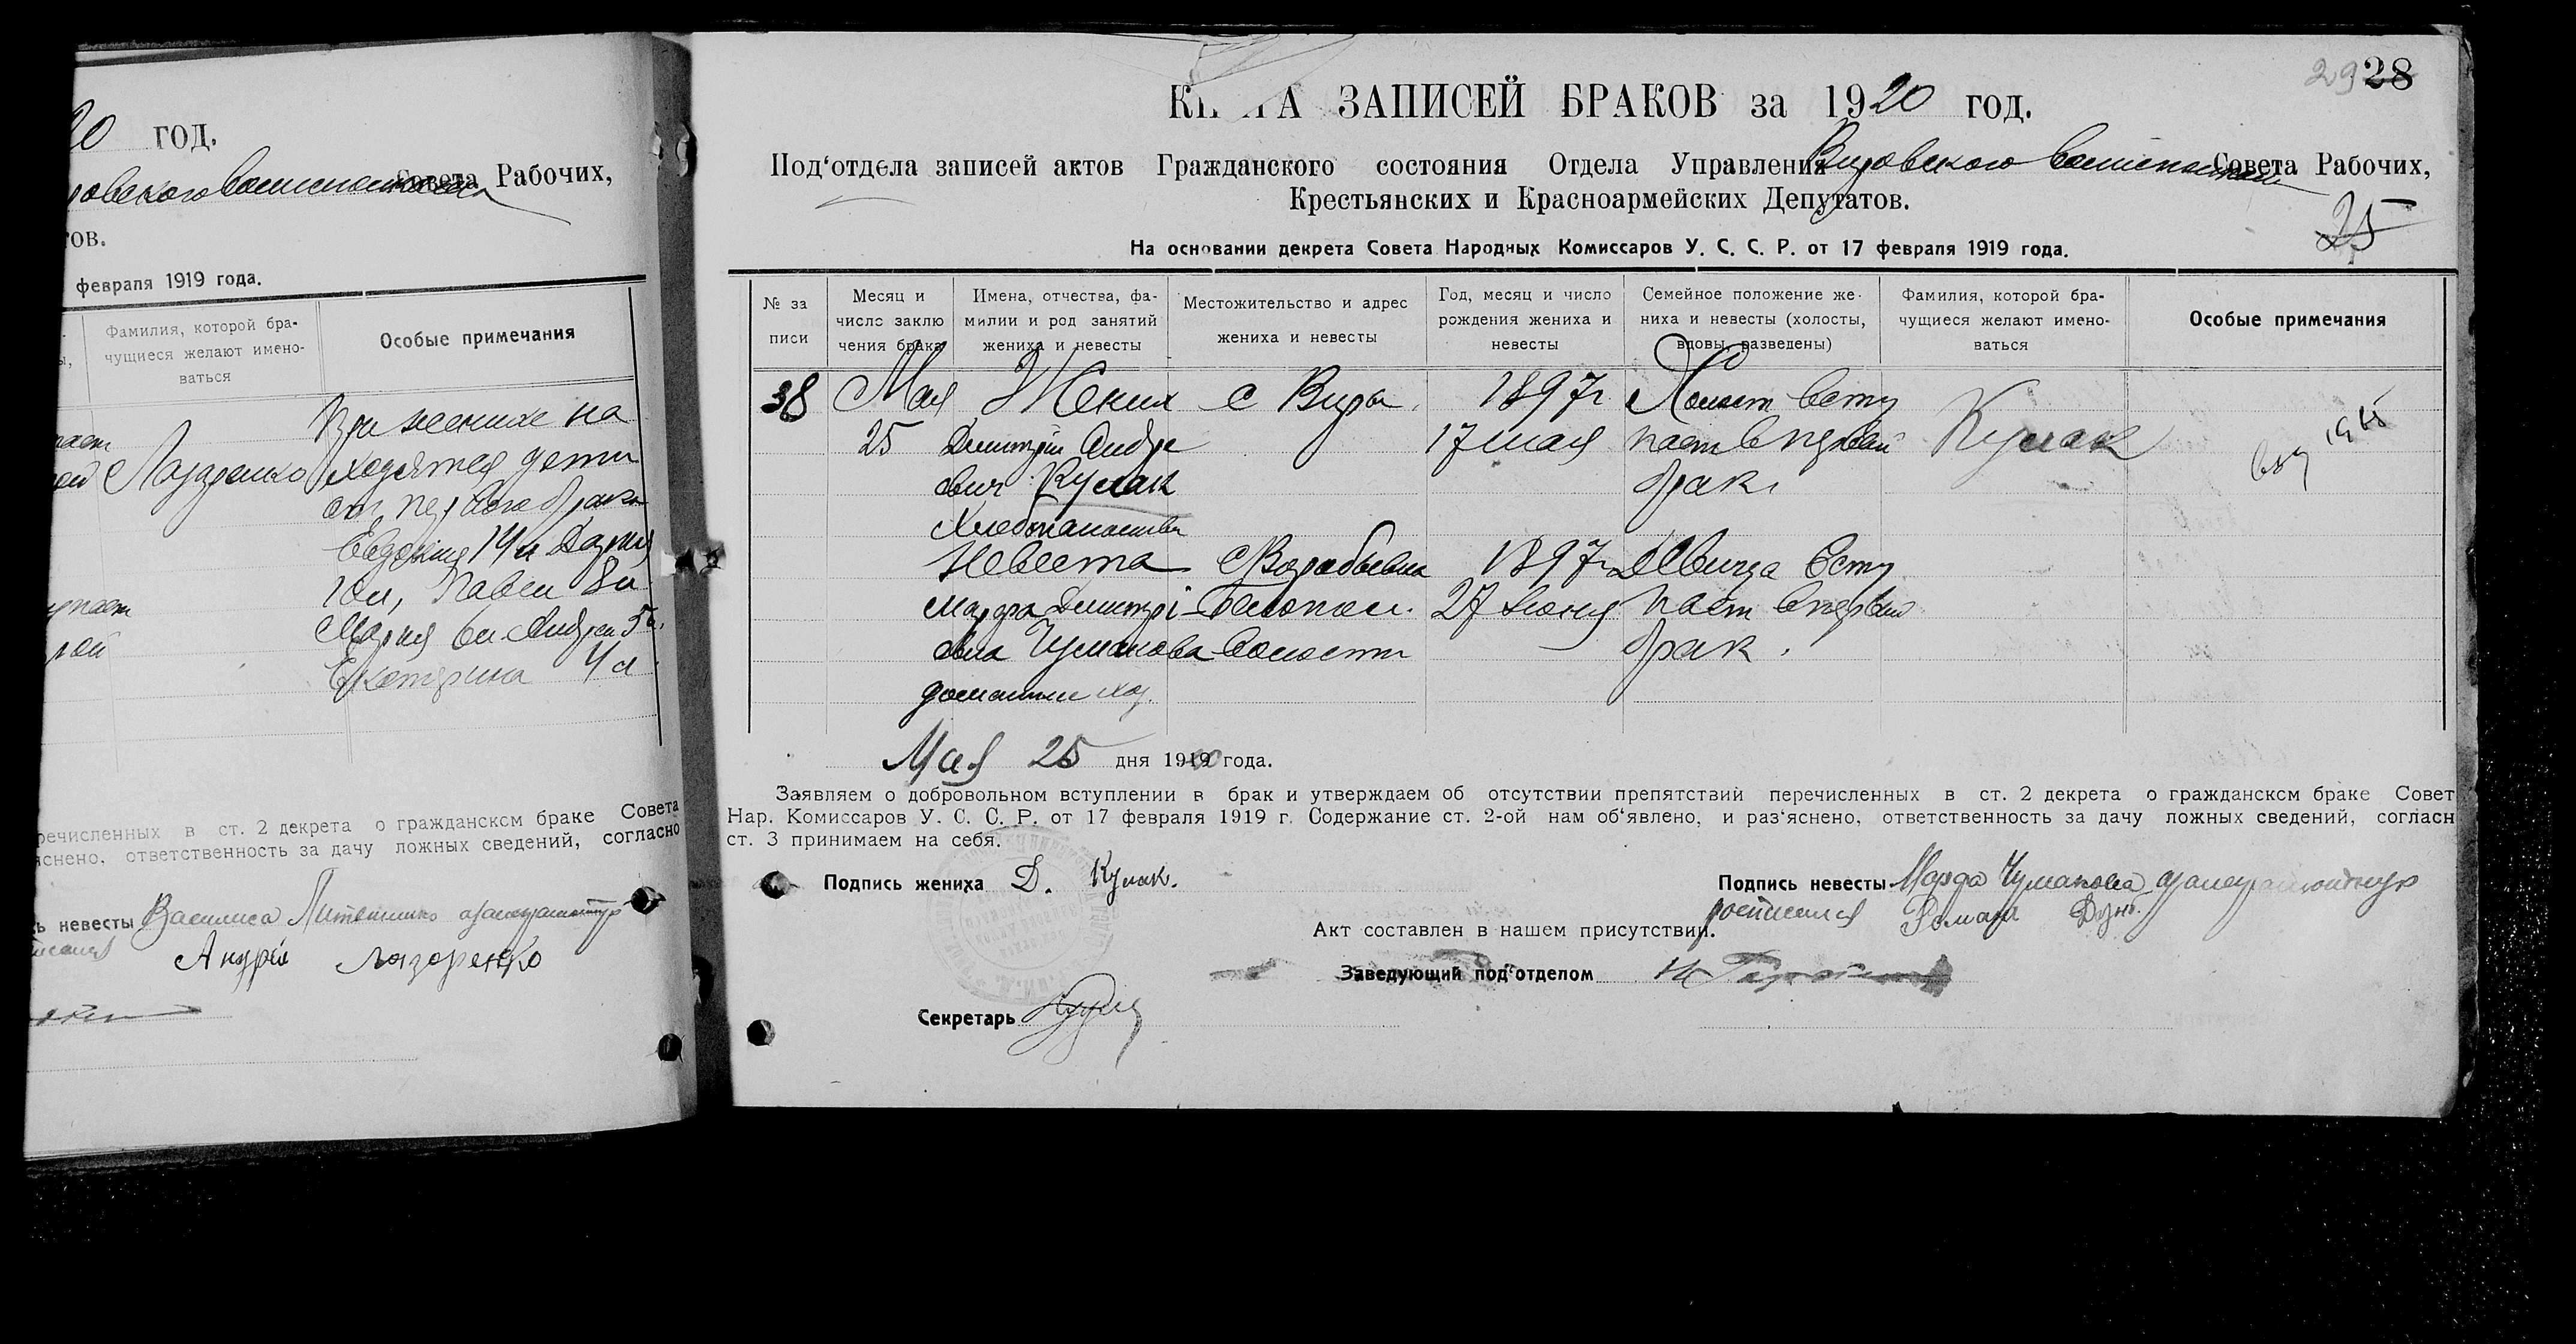 20 год.
Совета Рабочих,
тов.
февраля 1919 года.
Фамилия, которой бра-
чущиеся желают имено-
ваться
Особые примечания
При женихе на
Лазаренко ходятся дети
от первого брака
Евдокия 14 л Дария
10 л, Павел 8 л
Мария 6 л Андрей 5 л,
Екатерина 4 л.
речисленных в ст. 2 декрета о гражданском браке Совета
яснено, ответственность за дачу ложных сведений, согласно
ь невесты Василиса
Андрей Лазоренко
29 28
КН ГА ЗАПИСЕЙ БРАКОВ за 1920 год.
Под‘отдела записей актов Гражданского состояния Отдела Управления Совета Рабочих,
Крестьянских и Красноармейских Депутатов.
25
На основании декрета Совета Народных Комиссаров У. С. С. Р. от 17 февраля 1919 года.
№ за
писи
Месяц и
число заклю
чения брака
Имена, отчества, фа-
милии и род занятий
жениха и невесты
Местожительство и адрес
жениха и невесты
Год, месяц и число
рождения жениха и
невесты
Семейное положение же-
ниха и невесты (холосты,
вдовы, разведены)
Фамилия, которой бра-
чущиеся желают имено-
ваться
Особые примечания
38 Мая Жених с Виры 1897 г Холост всту
25 Дмитрий Андре 17 мая пает в первый Кулак
евич Кулак брак
Хлебопашество
Невеста с Воробьевка 1897 г Девица всту
Марфа Дмитрі Белопол. 27 Июня пает в первый
евна Чумакова волости брак.
домашнее хоз.
Мая 25 дня 1919 20 года.
Заявляем о добровольном вступлении в брак и утверждаем об отсутствии препятствий перечисленных в ст. 2 декрета о гражданском браке Совет
Нар. Комиссаров У. С. С. Р. от 17 февраля 1919 г. Содержание ст. 2-ой нам об‘явлено, и раз‘яснено, ответственность за дачу ложных сведений, согласн
ст. 3 принимаем на себя.
Подпись жениха Д. Кулак.
Подпись невесты Марфа Чумакова
росписался
Акт составлен в нашем присутствии.
Заведующий под‘отделом
Секретарь